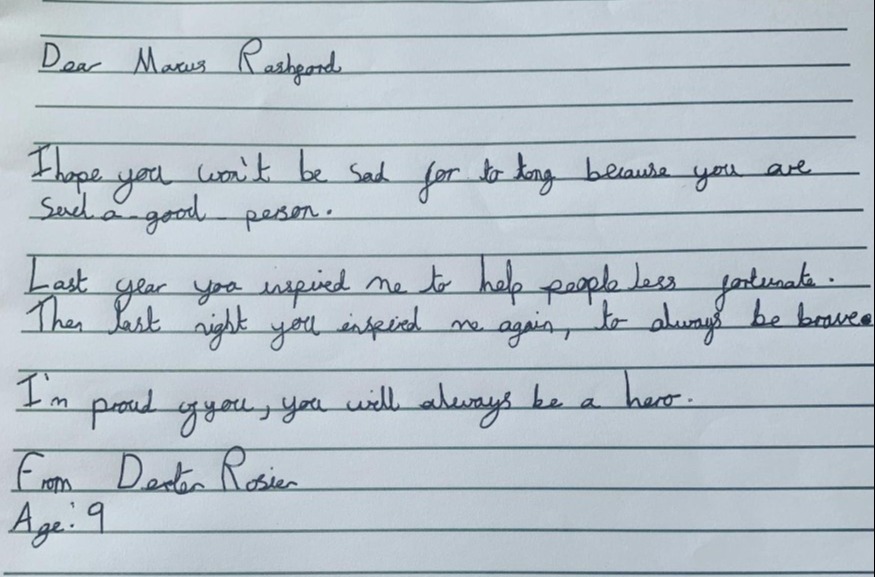 Dear Marcus Rashford
I hope you won't be sad for to long because you are
such a good person.
Last year you inspired me to help people less fortunate.
Then last night you inspired me again, to always be brave.
I'm proud of you, you will always be a hero.
From Dexter Rosier
Age: 9